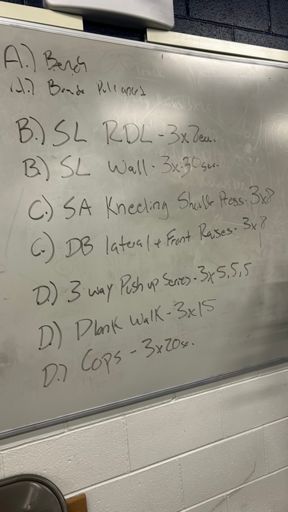 A.) Bench
A.) Bande Pull aparts
B.) SL RDL - 3x7ea.
B.) SL Wall - 3x30sec.
C.) SA Kneeling Shoulder Press - 3x8
C.) DB lateral + Front Raises - 3x8
D.) 3 way Push up Series - 3x5,5,5
D.) Plank Walk - 3x15
D.) Cops - 3x20s.